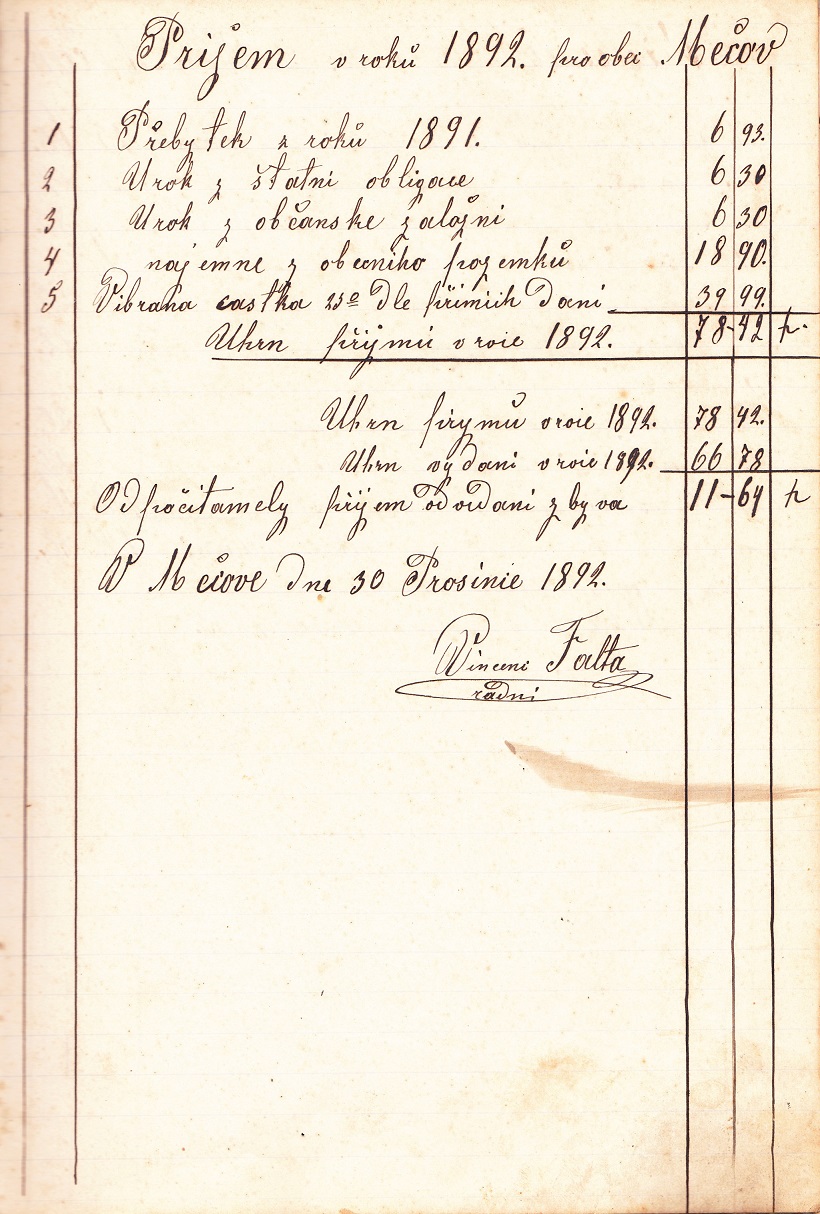 Prijem v roků 1892. pro obci Mečov
1 Přebytek z roků 1891. 6 93.
2 Urok z štatni obligace 6 30
3 Urok z občanske založni 6 30
4 najemne z obecniho pozemků 18 90.
5 Vibrana častka 23% dle přimich dani 39 99.
Uhrn přijmů v roce 1892. 78-42
Uhrn přijmů v roce 1892. 78 42.
Uhrn vydani v roce 1892. 66 78
Odpočitamely přijem od vidani zbyva 11-64
V Mečove dne 30 Prosince 1892.
Vincenc Falta
radni